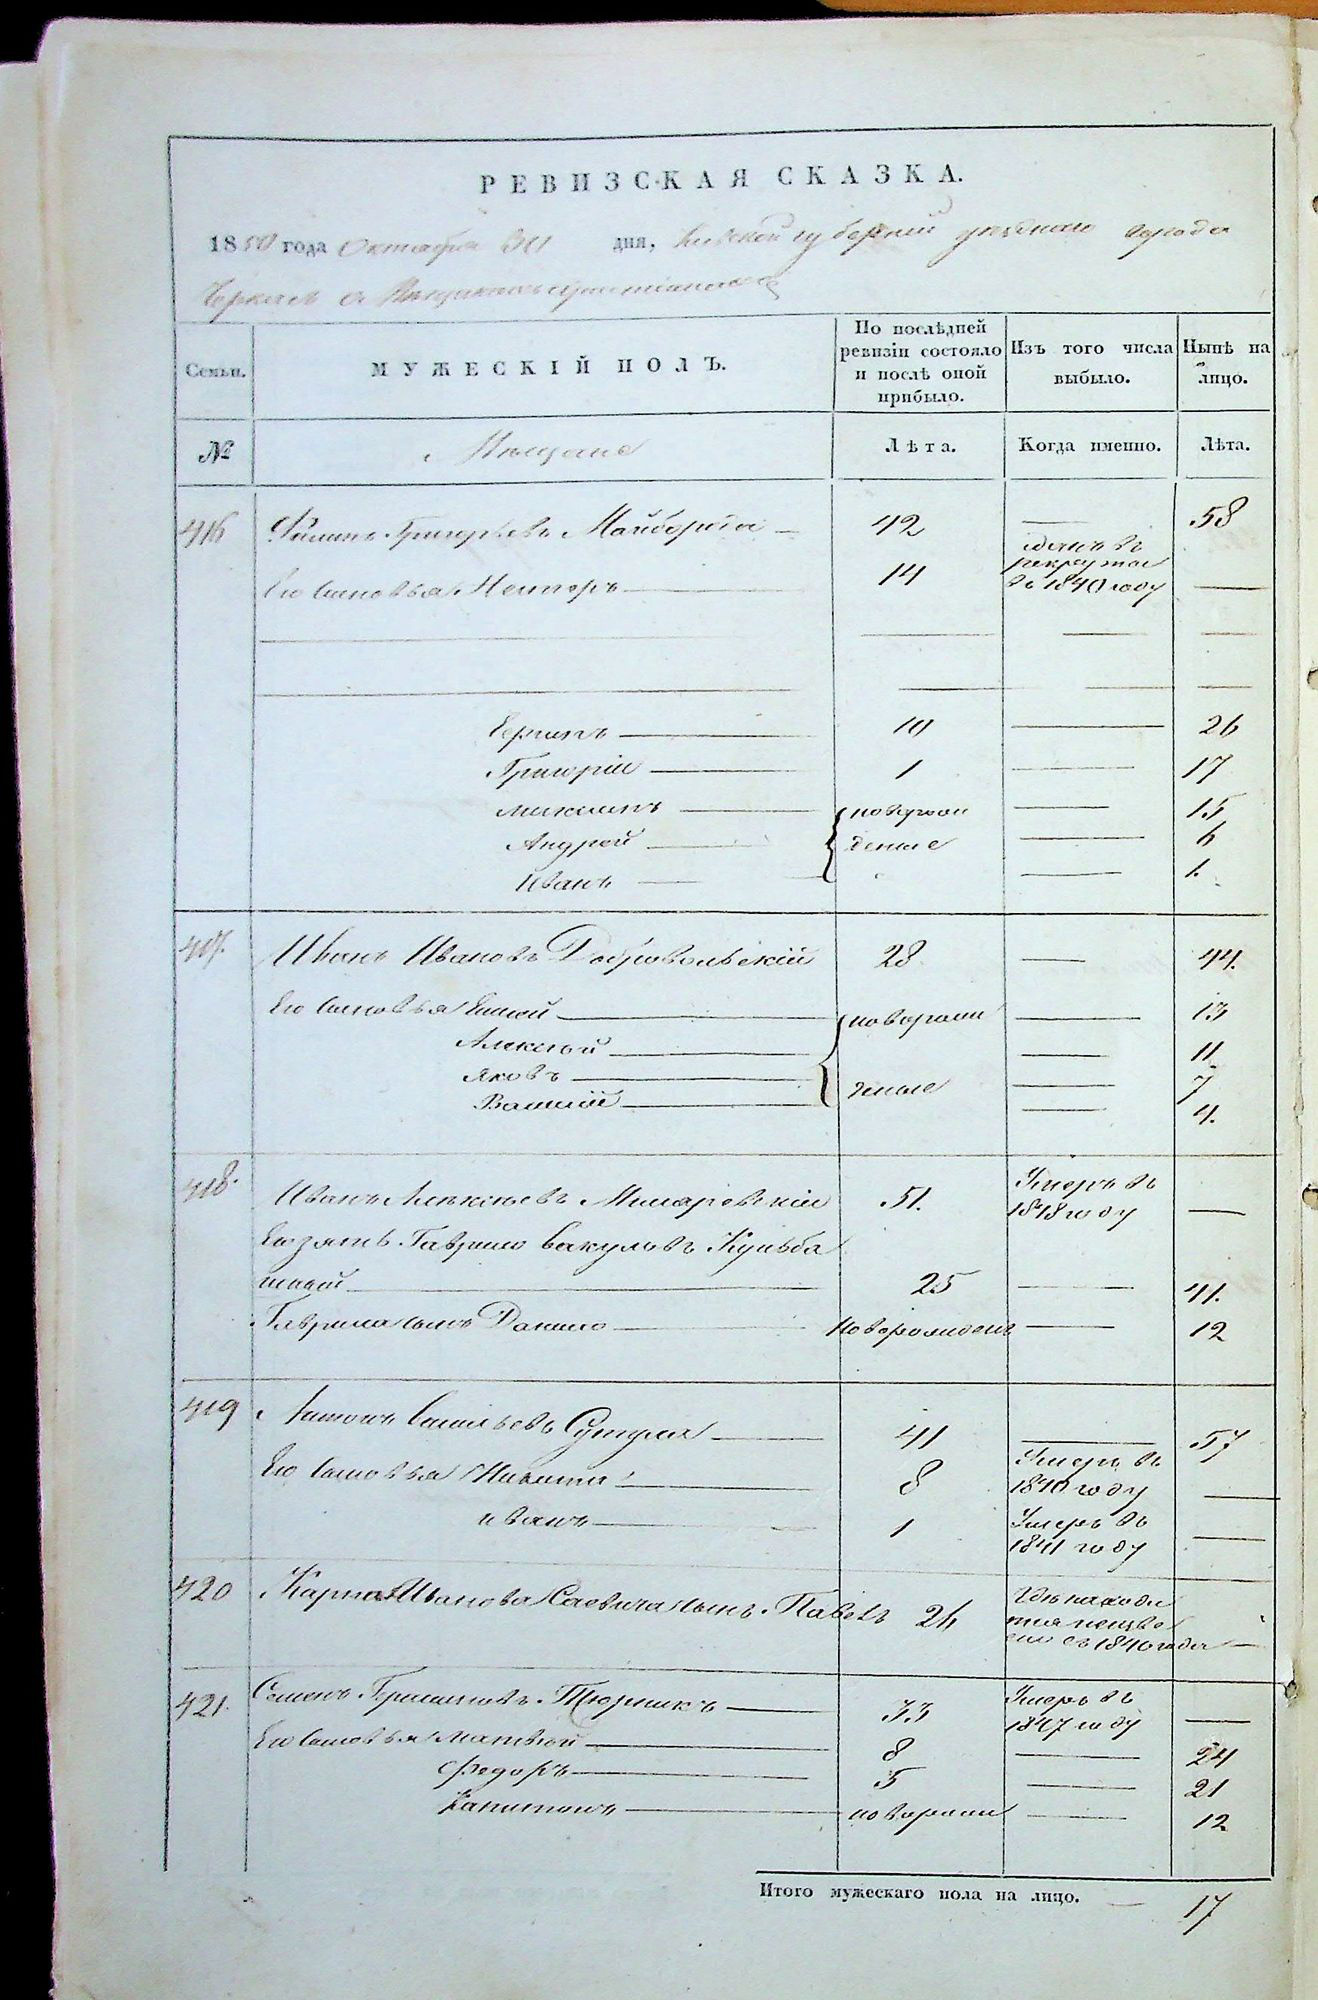 РЕВИЗСКАЯ СКАЗКА.
1850 года Октября 30 дня, Киевской губернии уезднаго города
Черкасъ о мещанахъ христианахъ
Семьи. МУЖЕСКІЙ ПОЛЪ. По послѣдней ревизіи состояло и послѣ оной прибыло. Изъ того числа выбыло. Нынѣ на лицо.
№ Мещане Лѣта. Когда именно. Лѣта.
416 Григорьевъ Майборода 42 — 58
Его сыновья Нестеръ 14 въ рекруты въ 1840 году —
10 — 26
Григорій 1 — 17
15
Андрей 6
Иванъ — 1.
417. Иванъ Ивановъ Добровольскій 28 — 44.
Его сыновья новорож — 13
Алексѣй — 11
Яковъ — 7
Василій денные — 4.
418. Иванъ Алексѣевъ 51. Умеръ въ 1848 году —
Его зять Гаврило Вакуловъ Кульба
25 — 41.
Гаврила сынъ Данило новорожденъ — 12
419 Антонъ Сутула 41 — 57
Его сыновья Никита 8 Умеръ въ 1840 году —
Иванъ 1 Умеръ въ 1841 году —
420 Карпа Иванова Саевича сынъ Павелъ 24 Где находится неизвестно съ 1840 года —
421. Семенъ 33 Умеръ въ 1847 году —
Его сыновья Матвѣй 8 — 24
Федоръ 5 — 21
Капитонъ новорожд — 12
Итого мужескаго пола на лицо. — 17